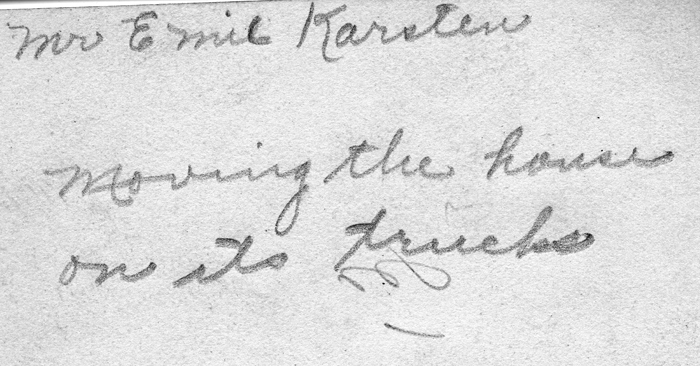 Mr Emil Karsten
moving the house
on its trucks